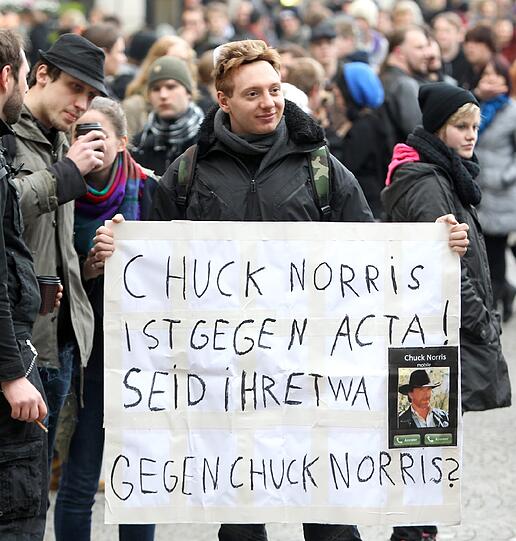 CHUCK NORRIS
IST GEGEN ACTA!
SEID IHR ETWA
Chuck Norris
mobile
GEGEN CHUCK NORRIS?